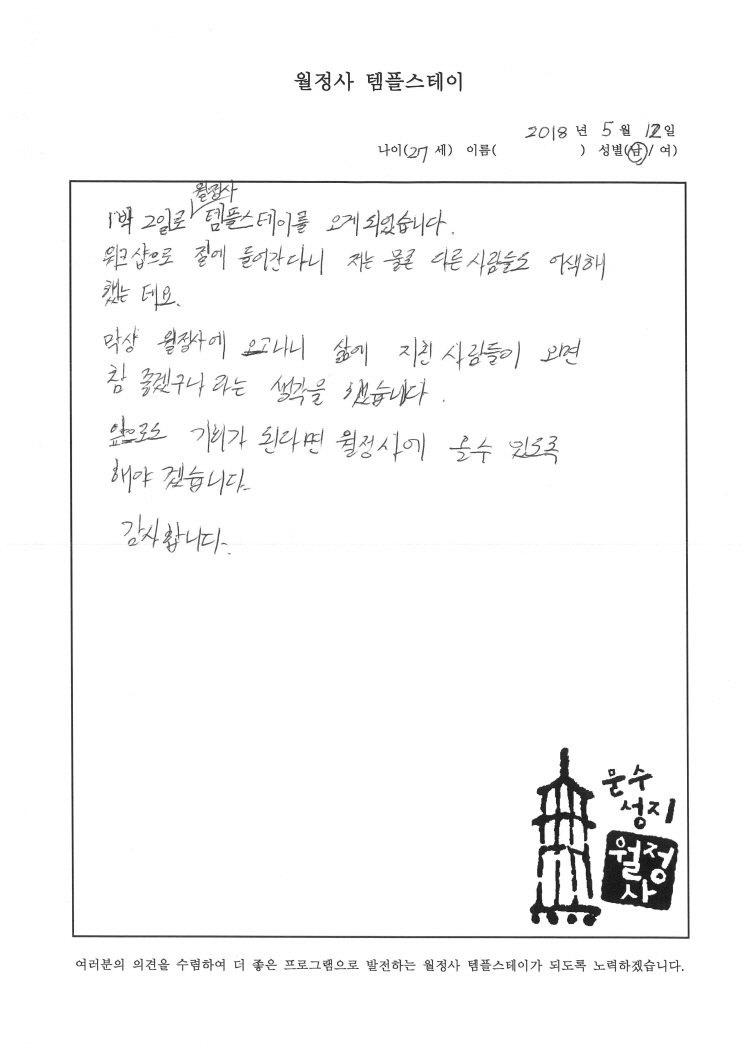 월정사 템플스테이
2018 년 5 월 12 일
나이(27 세) 이름( ) 성별(남 / 여)
월정사
1박 2일로 템플스테이를 오게 되었습니다.
워크샵으로 절에 들어간다니 저는 물론 다른 사람들도 어색해
했는 데요.
막상 월정사에 오고나니 삶에 지친 사람들이 오면
참 좋겠구나 라는 생각을 했습니다.
앞으로도 기회가 된다면 월정사에 올수 있도록
해야 겠습니다.
감사합니다.
문수
성지
월정
사
여러분의 의견을 수렴하여 더 좋은 프로그램으로 발전하는 월정사 템플스테이가 되도록 노력하겠습니다.